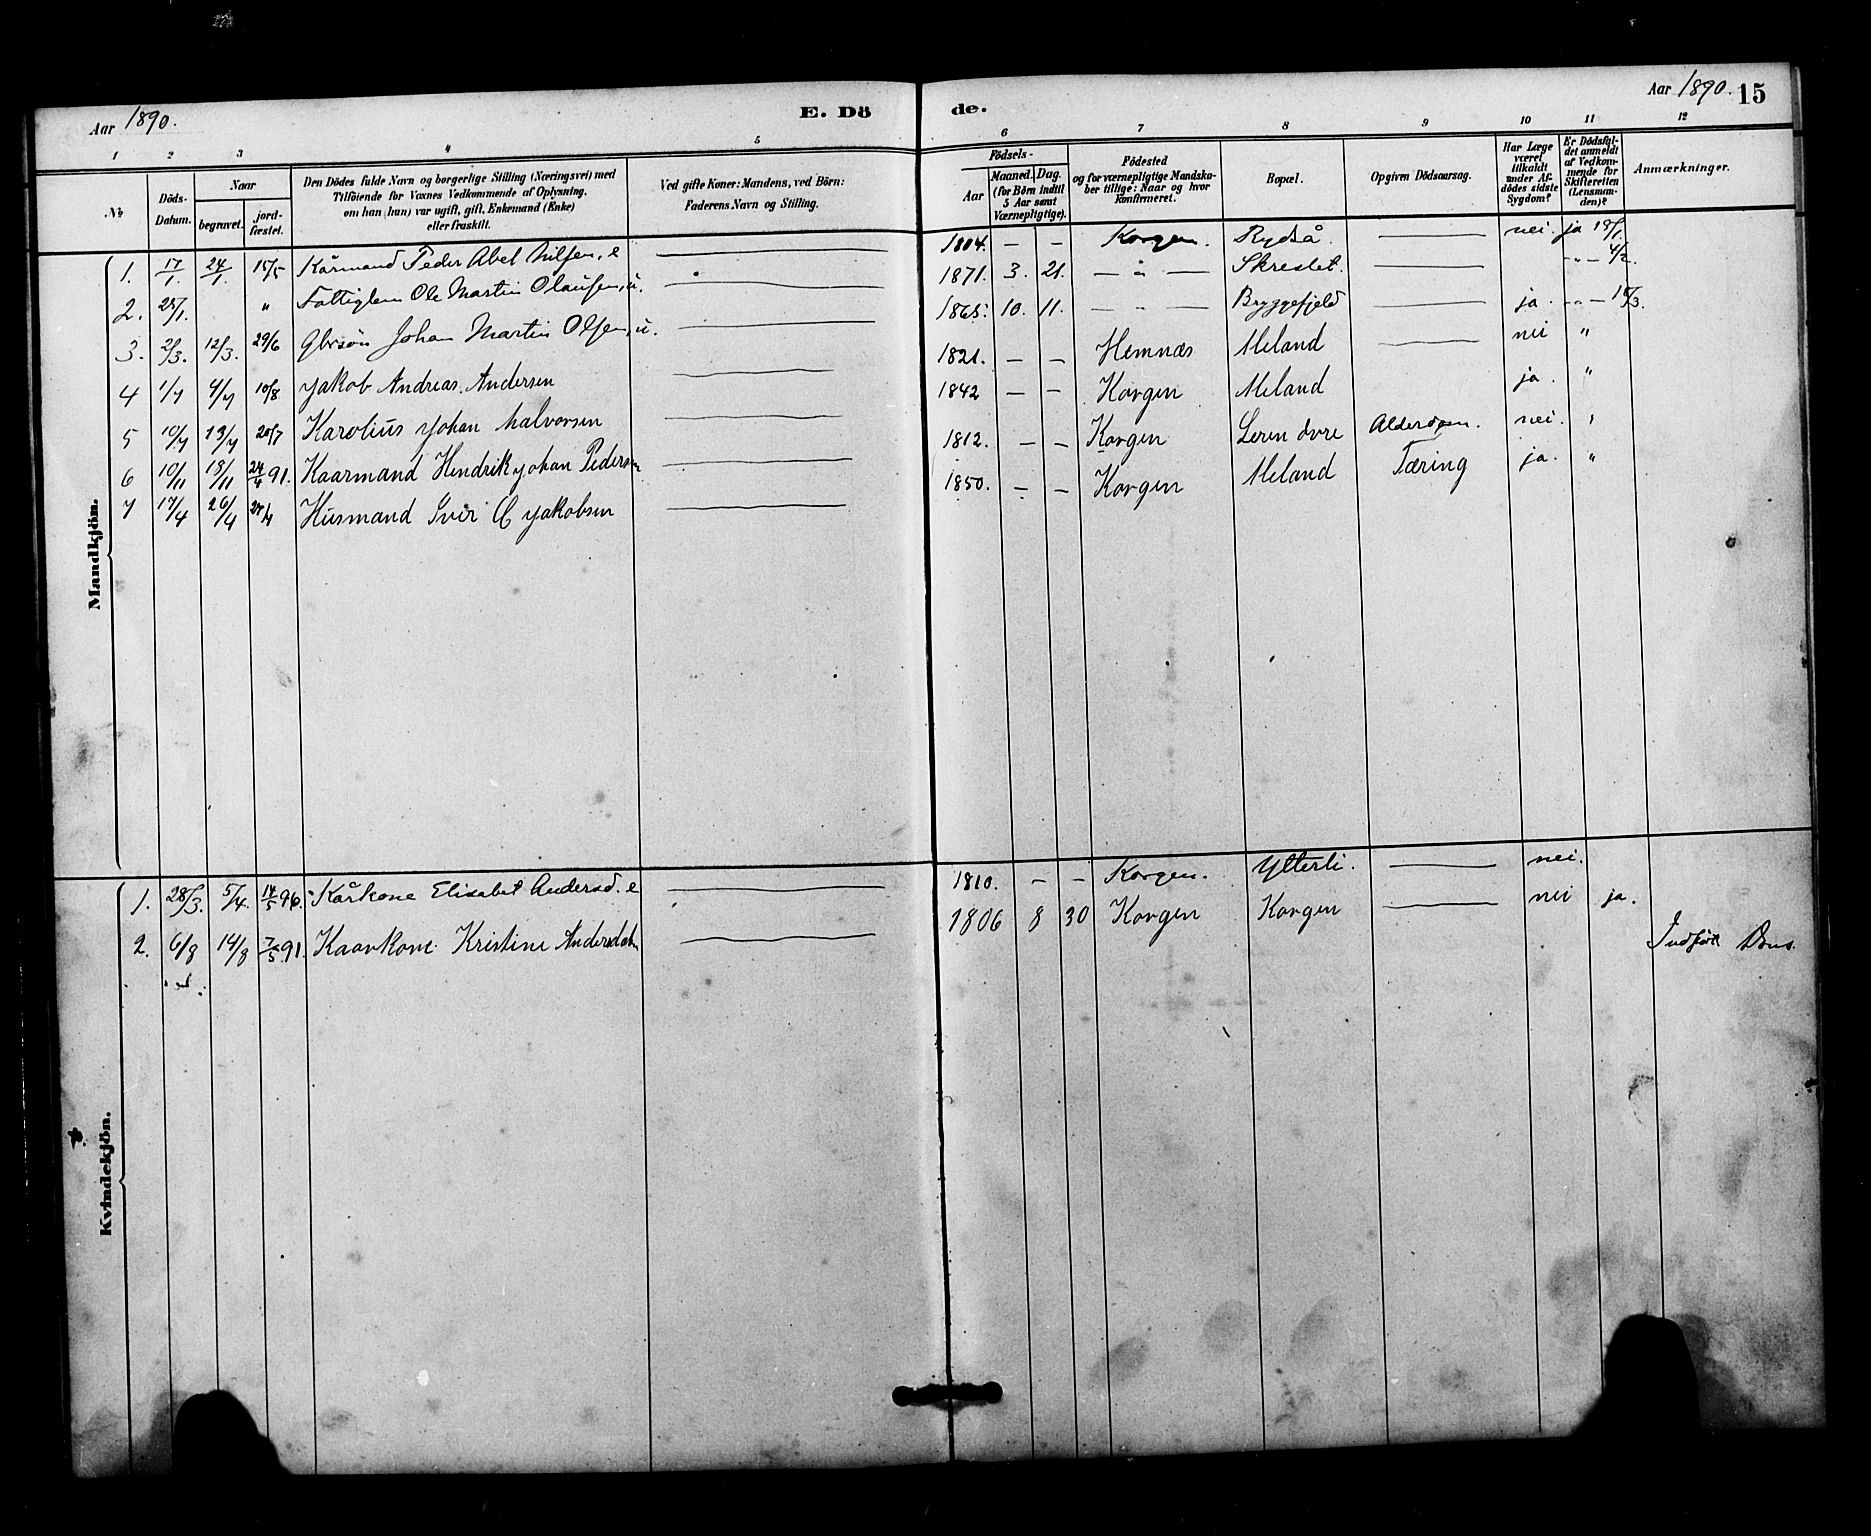 Aar 1890.
E. Dö
de.
Aar 1890. 15
1 2 3 4 5 6 7 8 9 10 11 12
No
Döds-Datum.
Naar
begravet.
jord-fæstet.
Den Dödes fulde Navn og borgerlige Stilling (Næringsvei) med
Tilföiende for Voxnes Vedkommende af Oplysning.
om han (hun) var ugift, gift, Enkemand (Enke)
eller fraskilt.
Ved gifte Koner: Mandens, ved Börn:
Faderens Navn og Stilling.
Födsels-
Aar
Maaned. Dag.
(for Börn indtil
5 Aar samt
Værnepligtige).
Födested
og for værnepligtige Mandska-
ber tillige: Naar og hvor
konfirmeret.
Bopæl.
Opgiven Dödsaarsag.
Har Læge
været
tilkaldt
under Af-
dödes sidste
Sygdom?
Er Dödsfal-
det anmeldt
af Vedkom-
mende for
Skifteretten
(Lensman-
den)?
Anmærkninger.
Mandkjön.
1. 17/1. 24/1. 15/5 Kårmand Peder Abel Nilsen, e 1804. — — Korgen. Rydså. nei. ja 18/1.
2. 25/1. " Fattiglem Ole Martin Olausen, u. 1871. 3. 21. — " — Skrestet. — " — 4/2.
3. 2/3. 12/3. 29/6 Gbrsøn Johan Martin Olsen, u. 1865. 10. 11. — " — Bryggefjeld ja. — " — 15/3.
4 1/7 4/7 10/8 Jakob Andreas Andersen 1821. — — Hemnæs Meland nei "
5 10/7 13/7 20/7 Karolius Johan Halvorsen 1842 — — Korgen Meland ja. "
6 10/11 18/11 24/4 91. Kaarmand Hendrik Johan Pedersen 1812. — — Korgen Leren övre Alderdom. nei. "
7 17/4 26/4 27/4 Husmand Iver C Jakobsen 1850. — — Korgen Meland Tæring ja. "
Kvindekjön.
1. 28/3. 5/4. 14/5 96. Kårkone Elisabet Andersd. e 1810. — — Korgen. Ytterli. nei.
2. 6/8 14/8 7/5 91. Kaarkone Kristine Andersdatn 1806 8 30 Korgen Korgen nei ja.
Indført